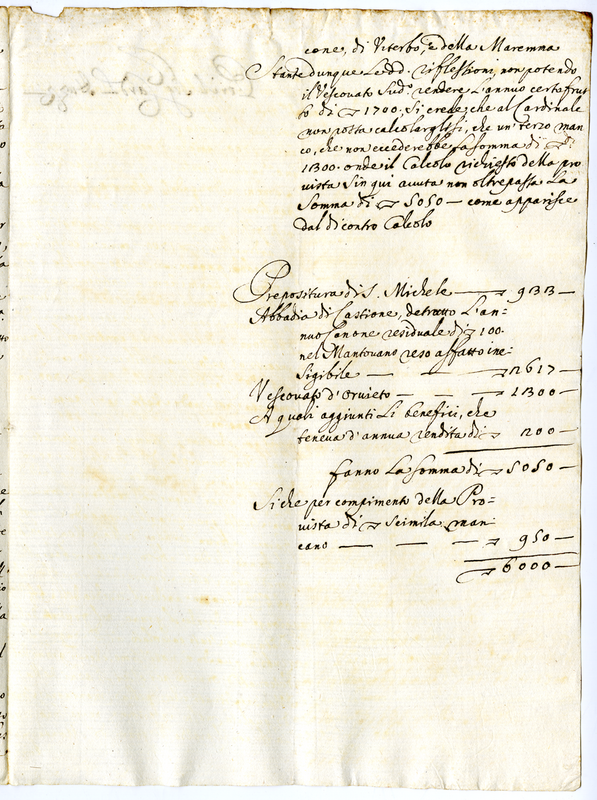 cone, di Viterbo, e della Maremma
Stante dunque le dd. riflessioni, non potendo
il Vescovato Sud.o rendere l'annuo certo frut
to di ▽ 1700, si crede, che al Cardinale
non possa calcolarglisi, che un terzo man
co, che non eccederebbe la somma di ▽di
1300. onde il Calcolo richiesto della pro
vista sin qui avuta non oltrepassa la
somma di ▽ 5050 — come apparisce
dal di contro Calcolo
Prepositura di S. Michele — ▽ 933 —
Abbadia di Castione, detratto l'an-
nuo Canone residuale di ▽ 100.
nel Mantovano reso affatto ine=
sigibile — — ▽ 2617 —
Vescovato d'Orvieto — — ▽ 1300 —
A quali aggiunti li benefici, che
teneva d'annua rendita di ▽ 200 —
fanno la somma di ▽ 5050 —
Siche per compimento della Pro=
vista di ▽ seimila man=
cano — — — ▽ 950 —
▽ 6000 —